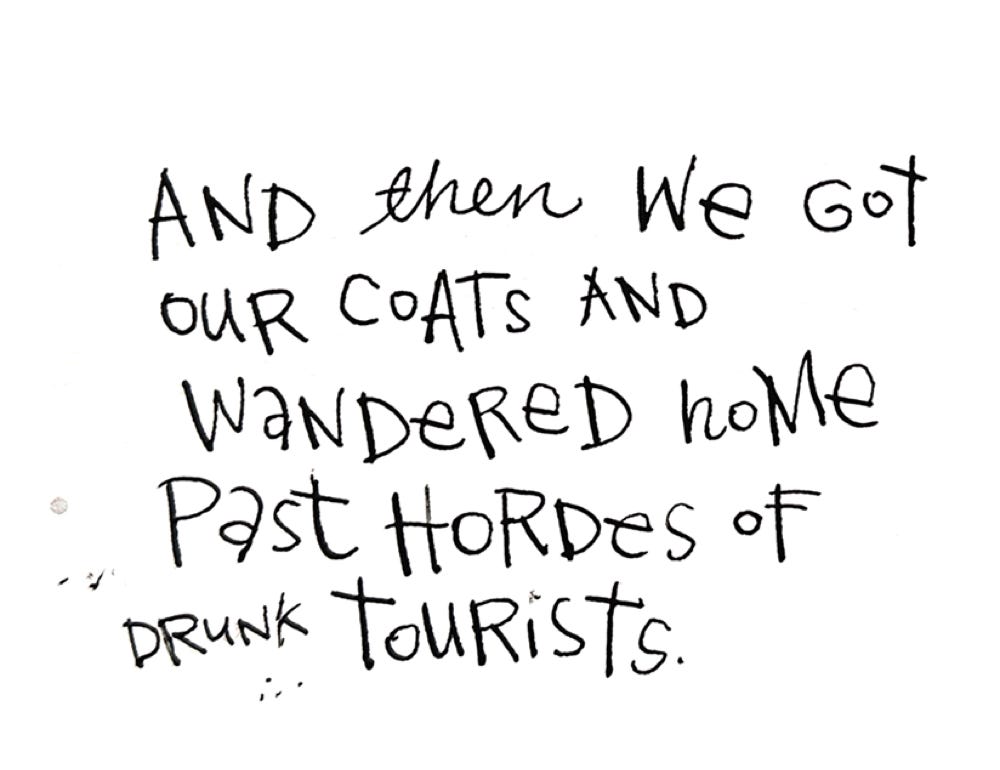 AND then We GoT
OUR COATS AND
WaNDeReD hoMe
Past HORDes oF
DRUNK toURiSTs.